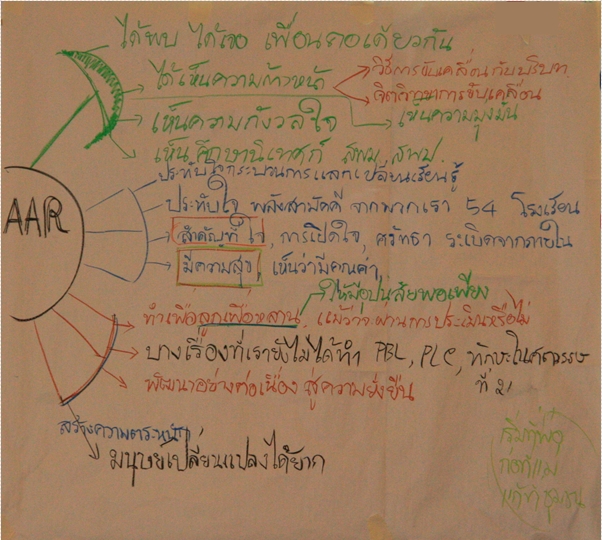 ได้พบ ได้เจอ เพื่อนคอเดียวกัน
ได้เห็นความก้าวหน้า
วิธีการขับเคลื่อนกับบริบท
จิตวิญญาการขับเคลื่อน
เห็นความมุ่งมั่น
เห็นความกังวลใจ
เห็นศึกษานิเทศก์ สพม. สพป.
AAR
ประทับใจกระบวนการแลกเปลี่ยนเรียนรู้
ประทับใจ พลังสามัคคี จากพวกเรา 54 โรงเรียน
สำคัญที่ใจ, การเปิดใจ, ศรัทธา ระเบิดจากภายใน
มีความสุข, เห็นว่ามีคุณค่า,
ให้มีอุปนิสัยพอเพียง
ทำเพื่อลูกเพื่อหลาน, แม้ว่าจะผ่านการประเมินหรือไม่
บางเรื่องที่เรายังไม่ได้ทำ PBL, PLC, ทักษะในศตวรรษที่ 21
พัฒนาอย่างต่อเนื่อง สู่ความยั่งยืน
สร้างความตระหนัก
มนุษย์เปลี่ยนแปลงได้ยาก